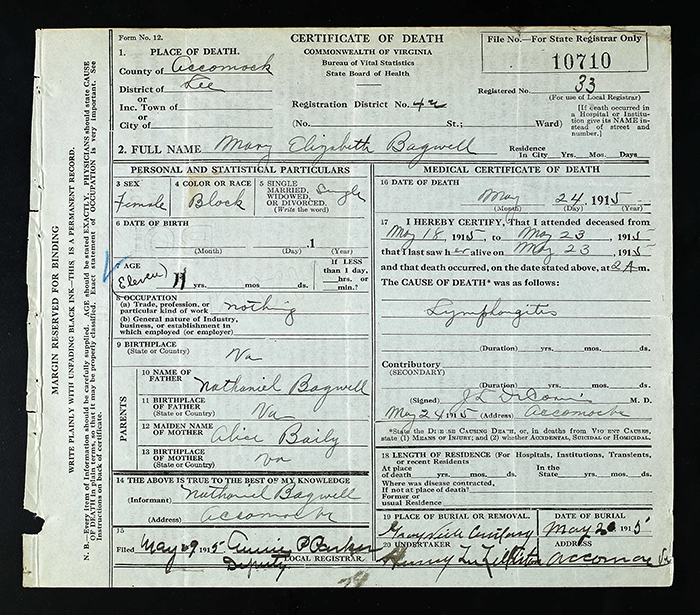 Form No. 12.
CERTIFICATE OF DEATH
COMMONWEALTH OF VIRGINIA
Bureau of Vital Statistics
State Board of Health
File No.—For State Registrar Only
10710
1. PLACE OF DEATH.
County of Accomack
District of Lee
or
Inc. Town of
or
City of
Registration District No. 42
Registered No. 33
(For use of Local Registrar)
(No. St.; Ward)
[If death occurred in a Hospital or Institution give its NAME instead of street and number.]
2. FULL NAME Mary Elizabeth Bagwell
Residence In City Yrs. Mos. Days
PERSONAL AND STATISTICAL PARTICULARS
3 SEX
Female
4 COLOR OR RACE
Black
5 SINGLE MARRIED, WIDOWED, OR DIVORCED. (Write the word)
Single
6 DATE OF BIRTH
(Month) (Day) , 1 (Year)
7 AGE
Eleven 11 yrs. mos. ds.
If LESS than 1 day, hrs. or min.?
8 OCCUPATION
(a) Trade, profession, or particular kind of work nothing
(b) General nature of Industry, business, or establishment in which employed (or employer)
9 BIRTHPLACE
(State or Country) Va
PARENTS
10 NAME OF FATHER Nathaniel Bagwell
11 BIRTHPLACE OF FATHER (State or Country) Va
12 MAIDEN NAME OF MOTHER Alice Baily
13 BIRTHPLACE OF MOTHER (State or Country) Va
14 THE ABOVE IS TRUE TO THE BEST OF MY KNOWLEDGE
(Informant) Nathaniel Bagwell
(Address)
15
Filed May 29 1915 Annie P Parker
Deputy LOCAL REGISTRAR.
MEDICAL CERTIFICATE OF DEATH
16 DATE OF DEATH
May 24, 1915
(Month) (Day) (Year)
17 I HEREBY CERTIFY, That I attended deceased from
May 18, 1915, to May 23, 1915
that I last saw her alive on May 23, 1915
and that death occurred, on the date stated above, at 2 A m.
The CAUSE OF DEATH* was as follows:
Lymphangitis
(Duration) yrs. mos. ds.
Contributory
(SECONDARY)
(Duration) yrs. mos. ds.
(Signed) M. D.
May 24 1915 (Address)
*State the DISEASE CAUSING DEATH, or, in deaths from VIOLENT CAUSES, state (1) MEANS OF INJURY; and (2) whether ACCIDENTAL, SUICIDAL or HOMICIDAL.
18 LENGTH OF RESIDENCE (For Hospitals, Institutions, Transients, or recent Residents
At place of death yrs. mos. ds.
In the State yrs. mos. ds.
Where was disease contracted, If not at place of death?
Former or usual residence
19 PLACE OF BURIAL OR REMOVAL.
DATE OF BURIAL
May 26 1915
20 UNDERTAKER
ADDRESS
MARGIN RESERVED FOR BINDING
WRITE PLAINLY WITH UNFADING BLACK INK—THIS, IS A PERMANENT RECORD.
N. B.—Every item of information should be carefully supplied. AGE should be stated EXACTLY. PHYSICIANS should state CAUSE
OF DEATH in plain terms, so that it may be properly classified. Exact statement of OCCUPATION is very important. See
instructions on back of certificate.